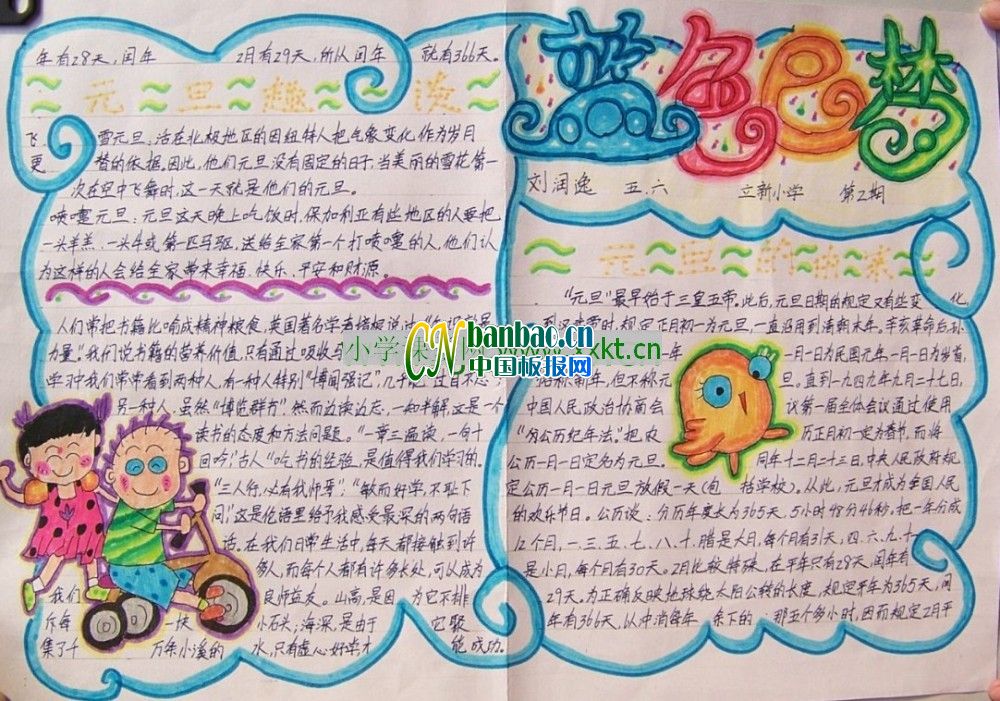 蓝色的梦
刘润逸 五.六 立新小学 第2期
元旦的由来
“元旦”最早始于三皇五帝。此后,元旦日期的规定又有些变化,
到汉武帝时,规定正月初一为元旦,一直沿用到清朝末年。辛亥革命后,孙
一年一月一日为民国元年,一月一日为岁首,
称新年,但不称元旦。直到一九四九年九月二十七日,
中国人民政治协商会议第一届全体会议通过使用
“公历纪年法”,把农历正月初一定为春节,而将
公历一月一日定名为元旦。同年十二月二十三日,中央人民政府规
定公历一月一日元旦放假一天(包括学校)。从此,元旦才成为全国人民
的欢乐节日。公历谈:分历年度长为365天,5小时48分46秒。把一年分成
12个月,一、三、五、七、八、十、腊是大月,每个月有31天,四、六、九、十一
是小月,每个月有30天。2月比较特殊,在平年只有28天,闰年有
29天。为正确反映地球绕太阳公转的长度,规定平年为365天,闰
年有366天,以冲消每年余下的那五个多小时,因而规定2月平
年有28天,闰年2月有29天,所以闰年就有366天。
元旦趣谈
飞雪元旦:活在北极地区的因纽特人把气象变化作为岁月
更替的依据。因此,他们元旦没有固定的日子,当美丽的雪花第一
次在空中飞舞时,这一天就是他们的元旦。
喷嚏元旦:元旦这天晚上吃饭时,保加利亚有些地区的人要把
一头羊羔、一头牛或第一匹马驱,送给全家第一个打喷嚏的人,他们认
为这样的人会给全家带来幸福、快乐、平安和财源。
人们常把书籍比喻成精神粮食,英国著名学者培根说过:“知识就是
力量”。我们说书籍的营养价值,只有通过吸收与
学习中我们常常看到两种人,有一种人特别“博闻强记”,几乎是“过目不忘”,
另一种人,虽然“博览群书”,然而边读边忘,一知半解,这是一个
读书的态度和方法问题。“一章三遍读,一句十
回吟”,古人“吃书”的经验,是值得我们学习的。
“三人行,必有我师焉”;“敏而好学,不耻下
问”,这是伦语里给予我感受最深的两句语
话。在我们日常生活中,每天都接触到许
多人,而每个人都有许多长处,可以成为
我们良师益友。山高,是因为它不排
斥每一块小石头;海深,是由于它聚
集了千万条小溪的水,只有虚心好学,才能成功。
CN banbao.cn
中国板报网
小学课 www. xxkt.cn